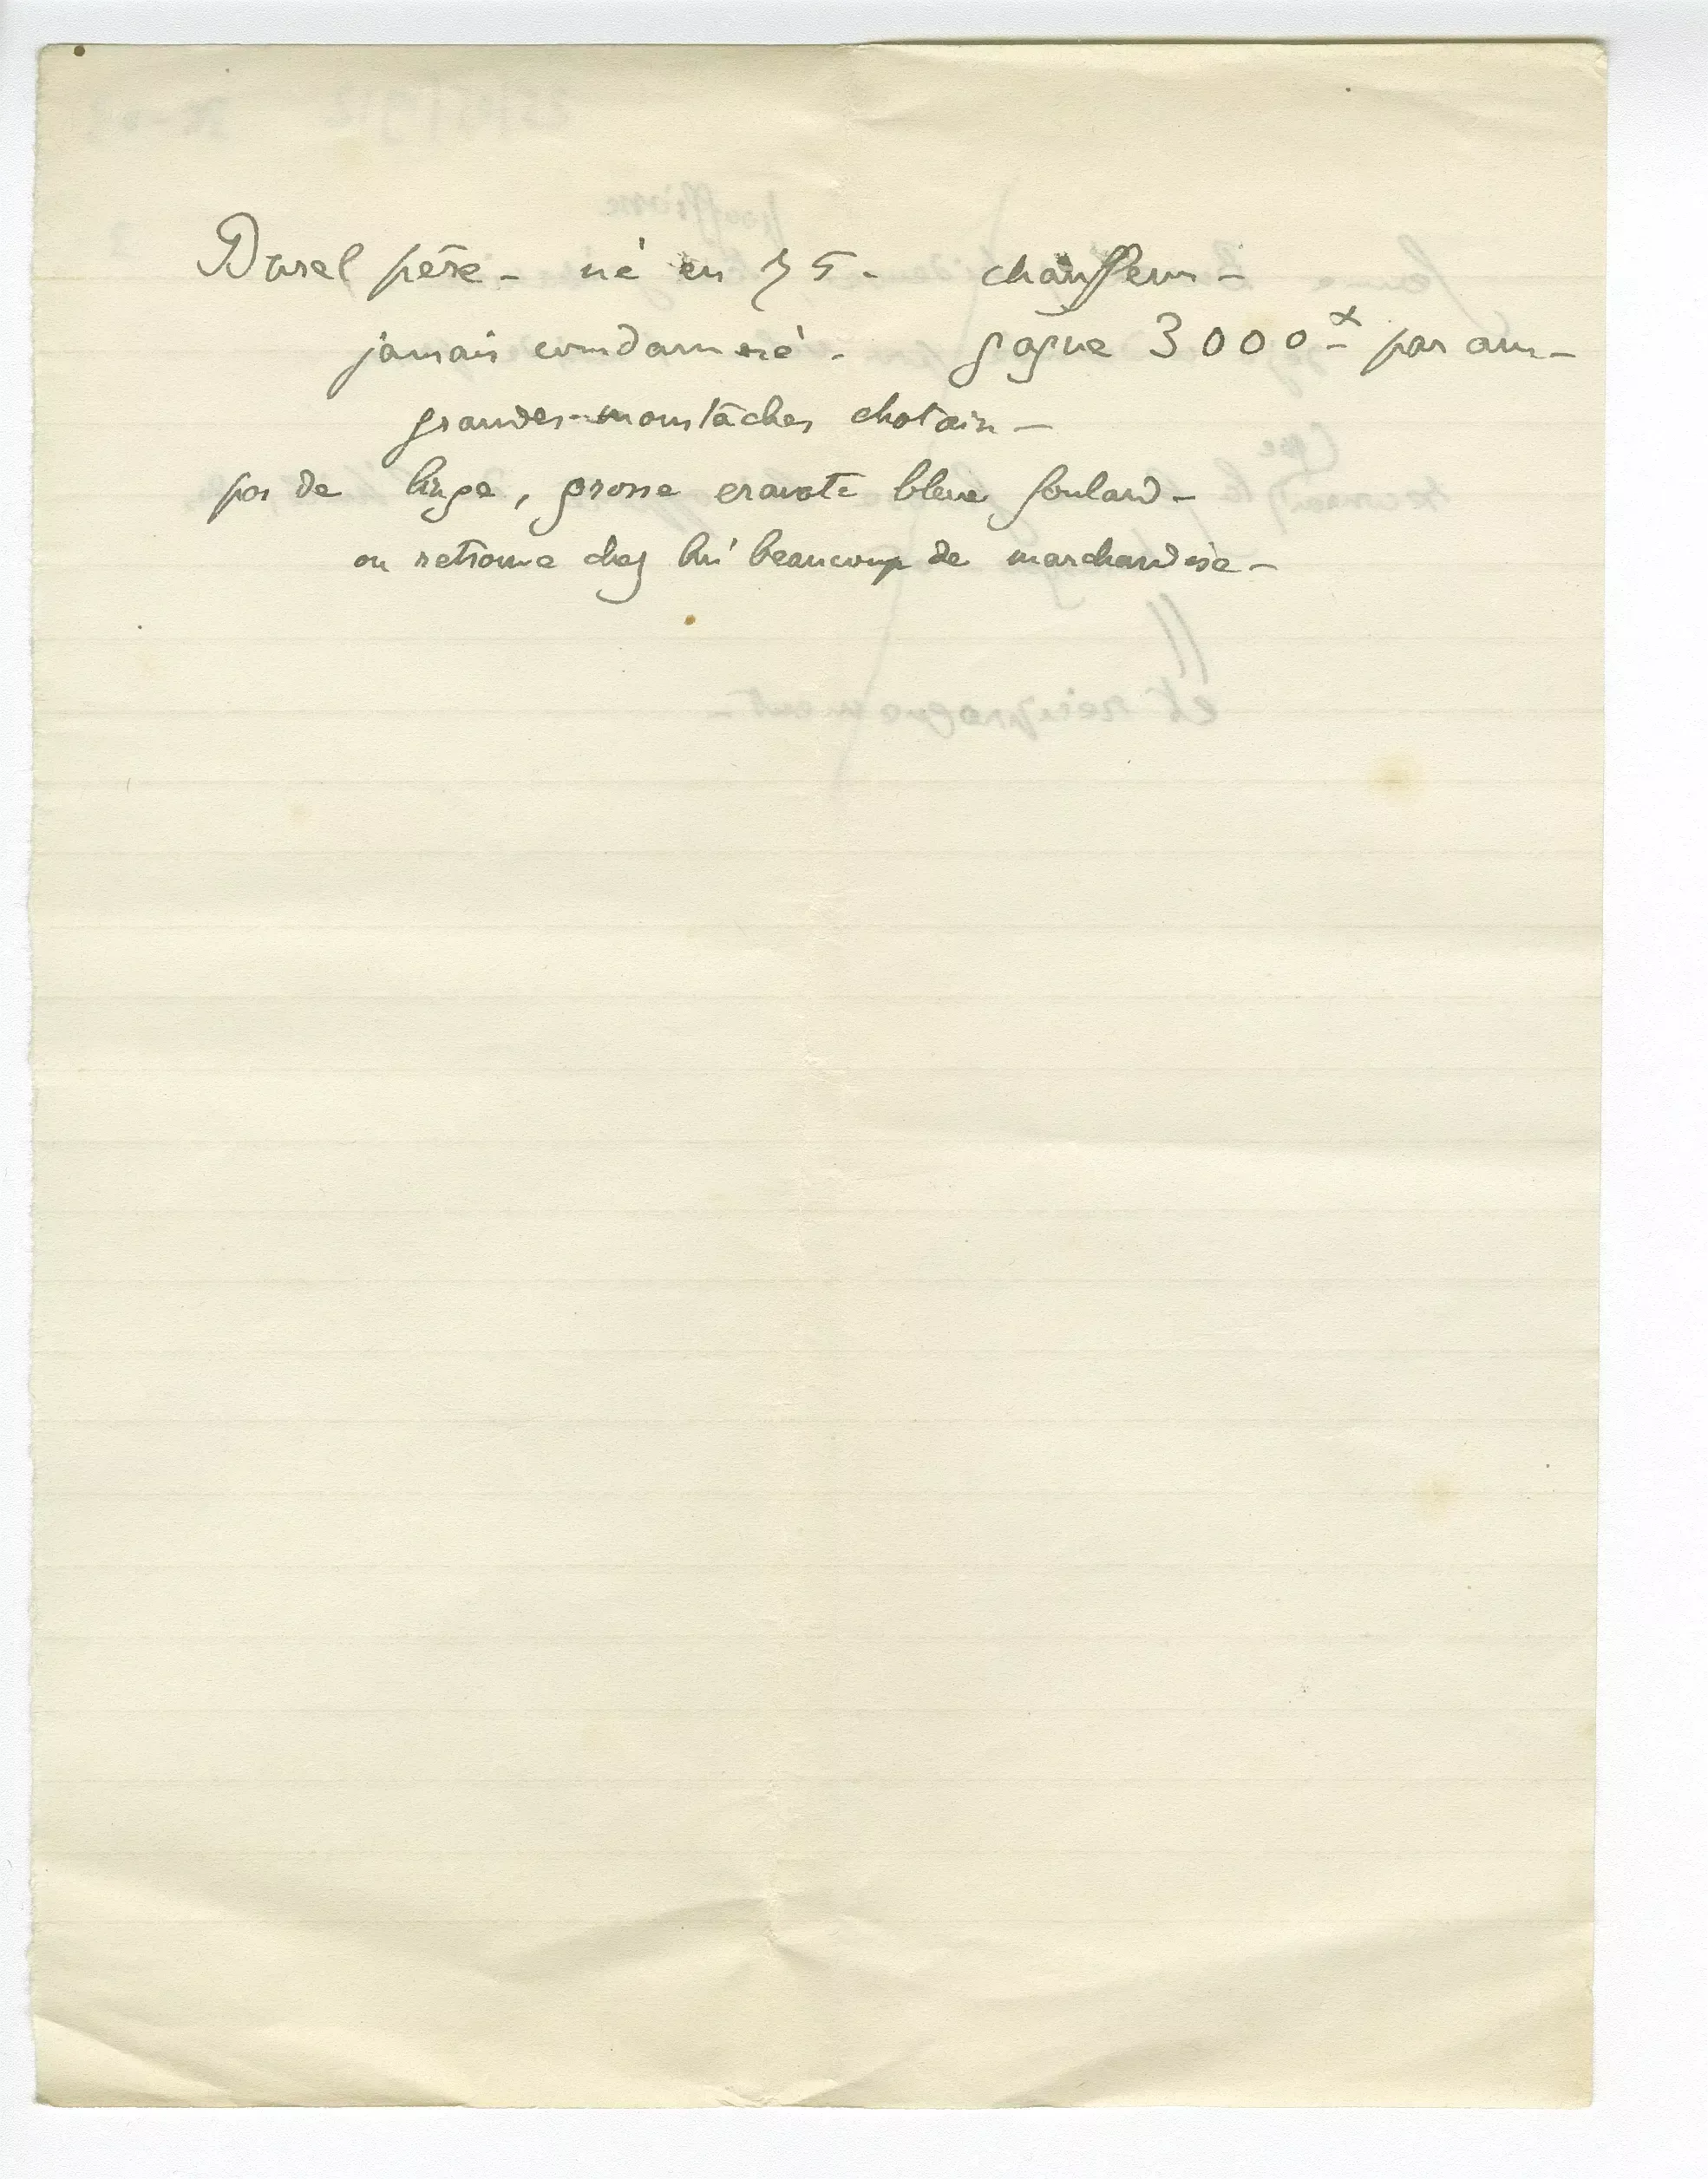 Durel père - né en 75 - chauffeur -
jamais condamné - gagne 3000 - par an -
grandes moustâches chatain -
pas de linge, grosse cravate bleue foulard -
on retrouve chez lui beaucoup de marchandise -
et réciproquement -